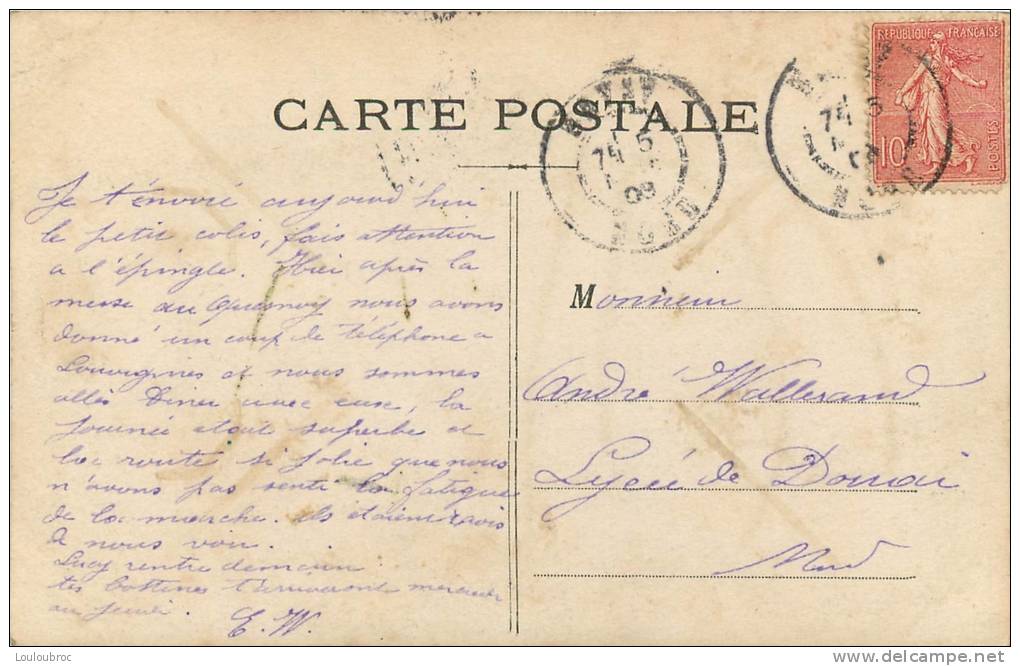 REPUBLIQUE FRANÇAISE
10
POSTES
CARTE POSTALE
NORD
Je t'envoie aujourd'hui
le petit colis, fais attention
a l'épingle. Hier après la
messe au Quesnoy nous avons
donné un coup de téléphone a
Louvignies et nous sommes
allés diner avec eux, la
journée était superbe et
la route si jolie que nous
n'avons pas senti la fatigue
de la marche. ils étaient ravis
de nous voir.
Lucy rentre demain
tes bottines t'arriveront mercredi
ou jeudi.
E. W.
Monsieur
André Wallerand
Lycée de Douai
Nord
Louloubroc
delcampe.net